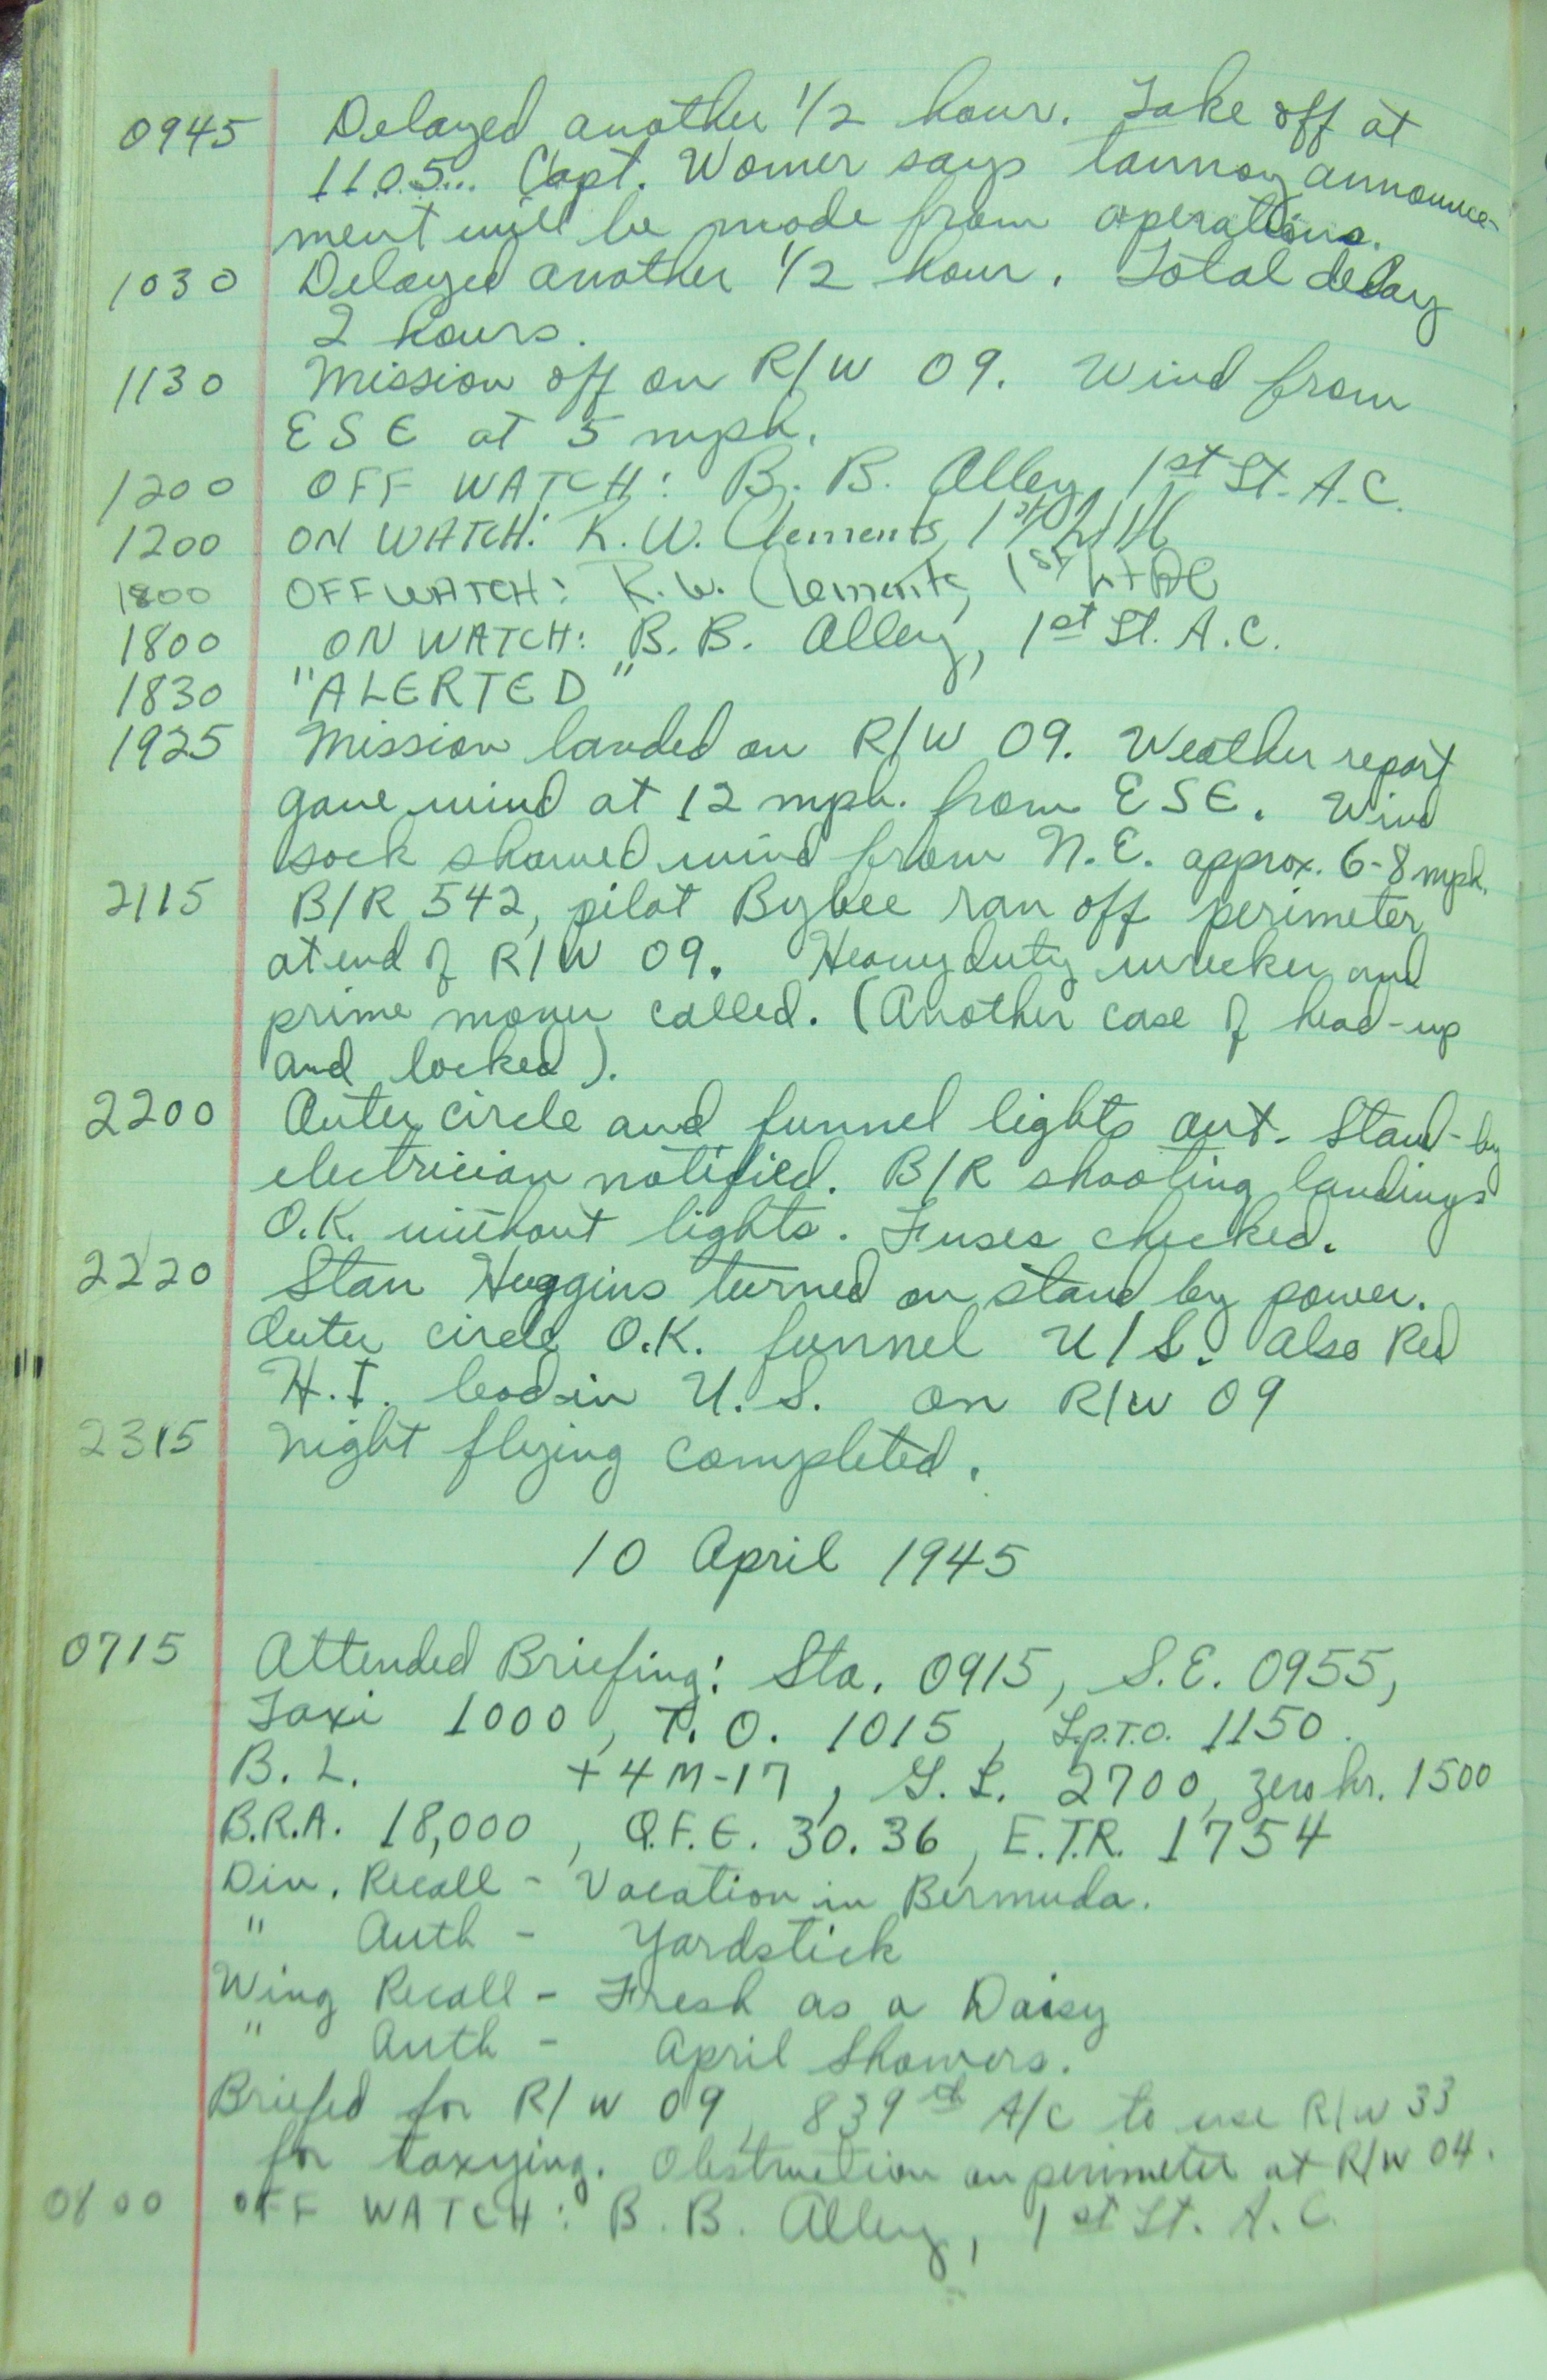 0945 Delayed another 1/2 hour. Take off at
1105... Capt. Womer says tannoy announce-
ment will be made from operations.
1030 Delayed another 1/2 hour. Total delay
2 hours.
1130 Mission off on R/W 09. Wind from
ESE at 5 mph.
1200 OFF WATCH: B. B. Alley, 1st Lt. A.C.
1200 ON WATCH: R. W. Clements, 1st
1800 OFF WATCH: R. W. Clements, 1st Lt AC
1800 ON WATCH: B. B. Alley, 1st Lt. A.C.
1830 "ALERTED"
1925 Mission landed on R/W 09. Weather report
gave wind at 12 mph. from ESE. Wind
sock showed wind from N.E. approx. 6-8 mph.
2115 B/R 542, pilot Bybee ran off perimeter
at end of R/W 09. Heavy duty wrecker and
prime mover called. (Another case of head-up
and locked).
2200 Outer circle and funnel lights out. Stand-by
electrician notified. B/R shooting landings
O.K. without lights. Fuses checked.
2220 Stan Huggins turned on stand by power.
Outer circle O.K. funnel U/S. Also Red
H.I. lead-in U.S. on R/W 09
2315 Night flying completed.
10 April 1945
0715 Attended Briefing: Sta. 0915, S.E. 0955,
Taxi 1000, T.O. 1015, L.p.T.O. 1150.
B.L. +4 M-17, G.L. 2700, zero hr. 1500
B.R.A. 18,000, Q.F.E. 30.36, E.T.R. 1754
Div. Recall - Vacation in Bermuda.
" Auth - Yardstick
Wing Recall - Fresh as a Daisy
" Auth - April Showers.
Briefed for R/W 09, 839st A/C to use R/W 33
for taxying. Obstruction on perimeter at R/W 04.
0800 OFF WATCH: B. B. Alley, 1st Lt. A.C.